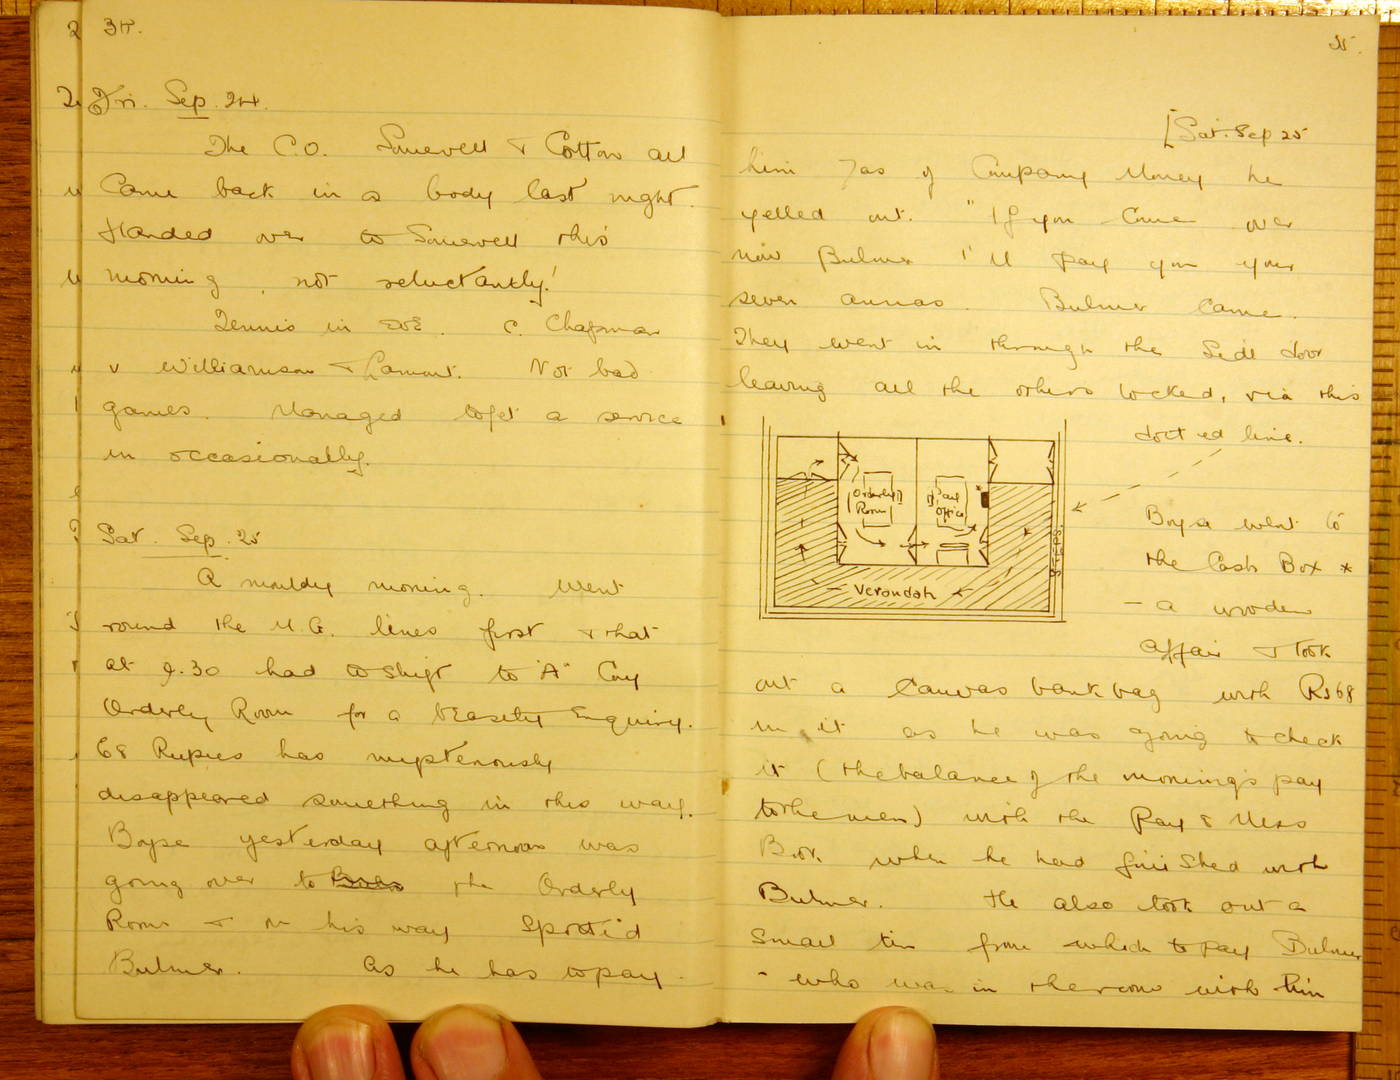 34.
Fri. Sep. 24.
The C.O. Somervell & Cotton all
Came back in a body last night.
Handed over to Somervell this
morning, not reluctantly!
Tennis in eve. C. Chapman
v Williamson & Lamont. Not bad
games. Managed to get a service
in occasionally.
Sat. Sep. 25
A mouldy morning. Went
round the M.G. lines first & that
at 9.30 had to shift to "A" Coy
Orderly Room for a beastly Enquiry.
68 Rupees has mysteriously
disappeared something in this way.
Boyse yesterday afternoon was
going over to the Orderly
Room & on his way Spotted
Bulmer. As he has to pay
35.
[Sat. Sep 25
him 7as of Company Money he
yelled out. "If you Come over
now Bulmer I'll pay you your
seven annas. Bulmer Came.
They went in through the Side door
leaving all the others locked, via this
dotted line.
Orderly Room
Pay Office
Verandah
STEPS.
Boyse went to
the Cash Box *
- a wooden
affair & took
out a Canvas bank bag with Rs 68
in it as he was going to check
it (the balance of the morning's pay
to the men) with the Pay & Mess
Book when he had finished with
Bulmer. He also took out a
Small tin from which to pay Bulmer
- who was in the room with him